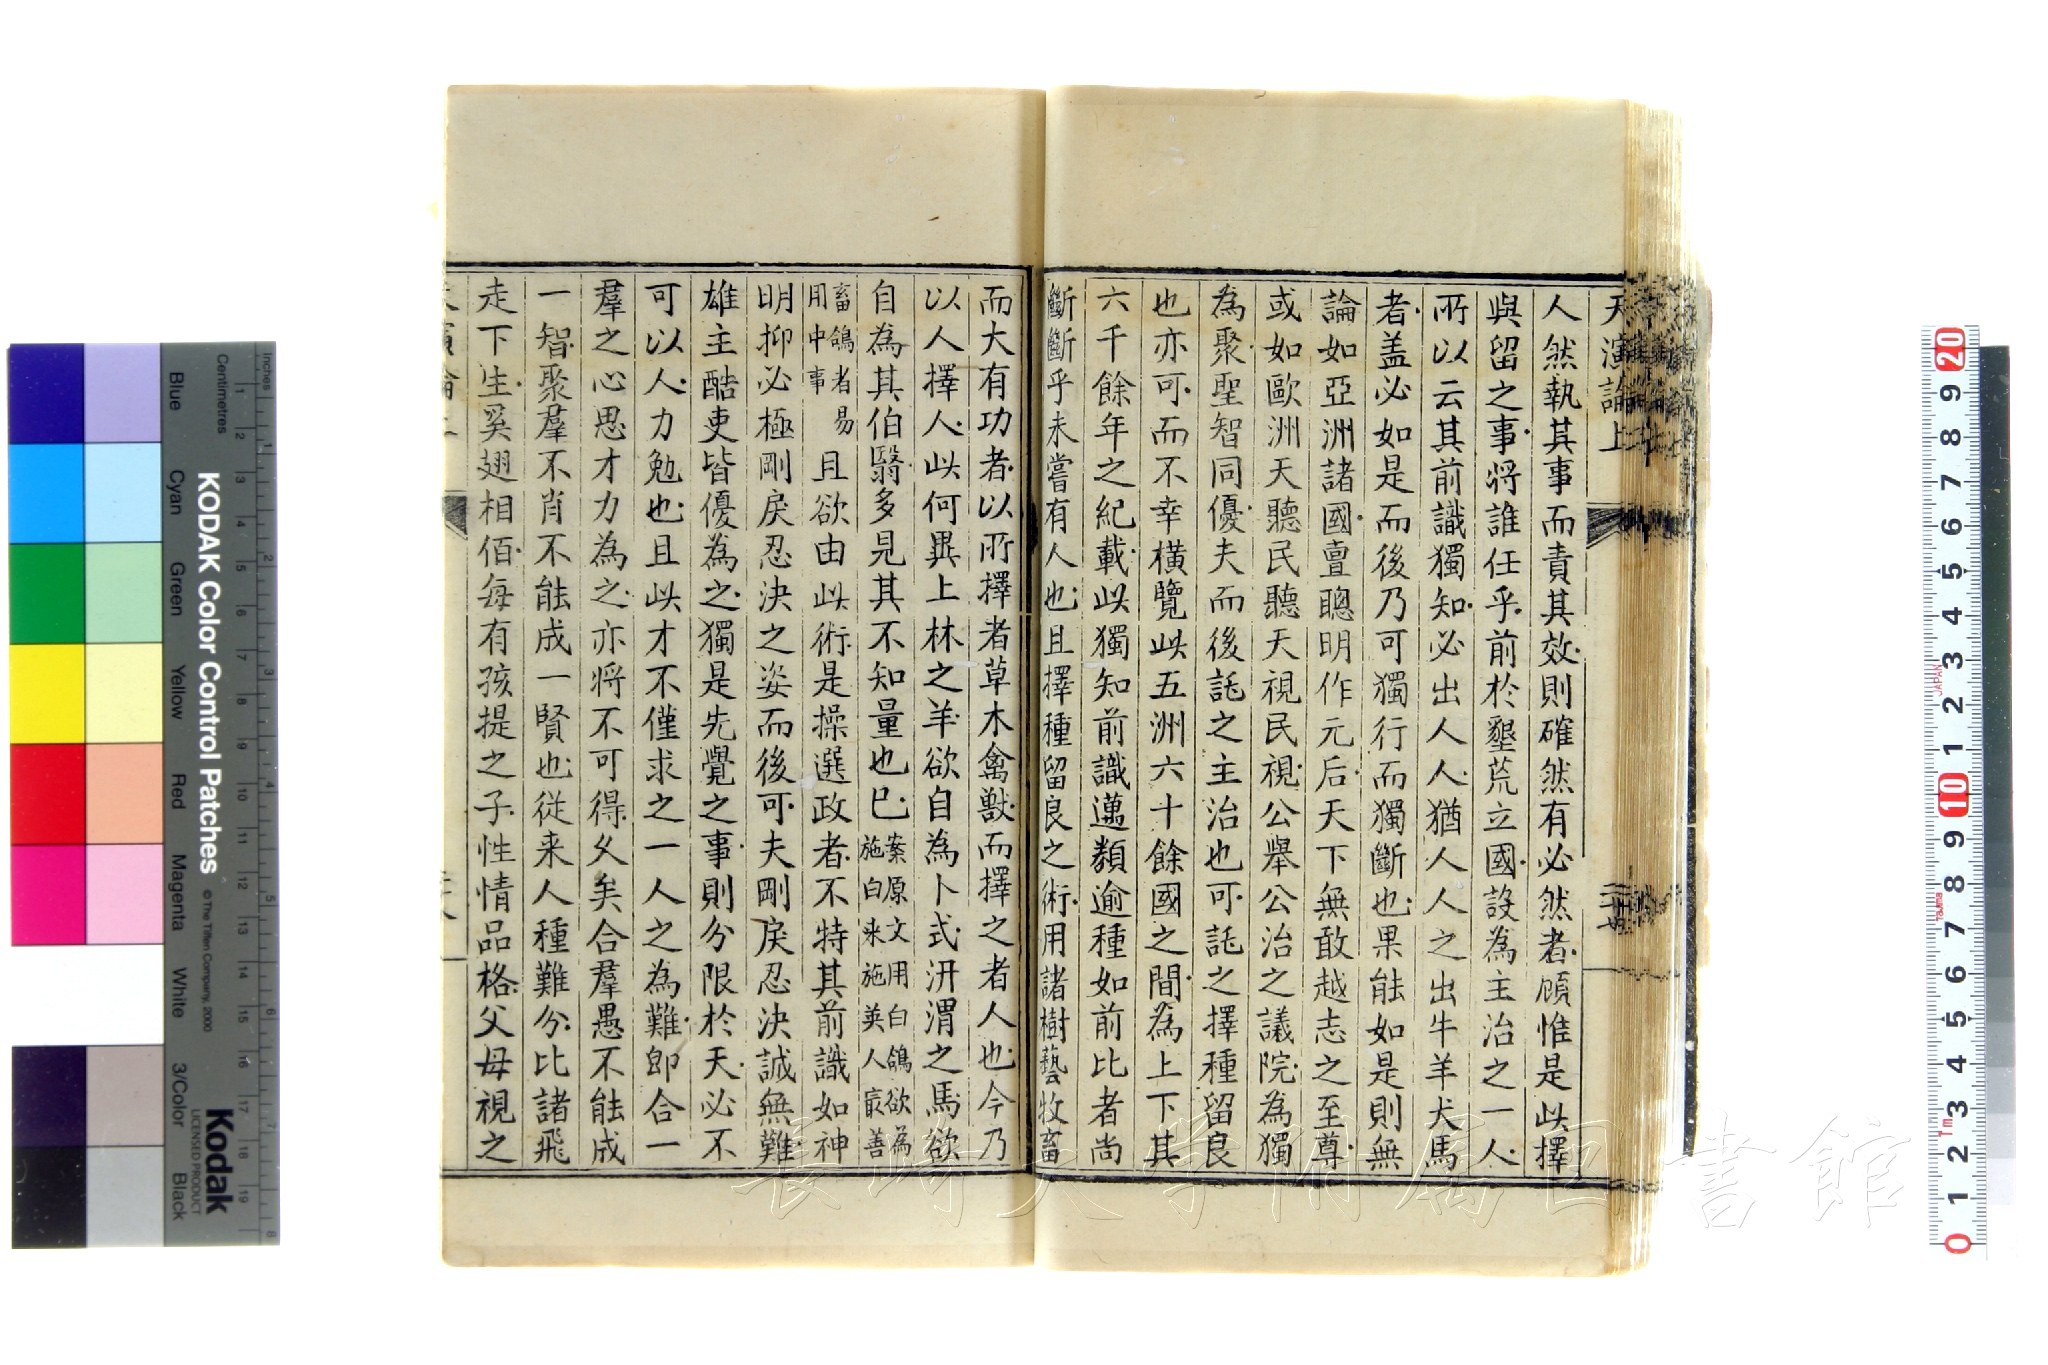 天演論上
人然執其事而責其效則確然有必然者顧惟是此擇
與留之事將誰任乎前於墾荒立國設為主治之一人
所以云其前識獨知必出人人猶人人之出牛羊犬馬
者蓋必如是而後乃可獨行而獨斷也果能如是則無
論如亞洲諸國亶聰明作元后天下無敢越志之至尊
或如歐洲天聽民聽天視民視公舉公治之議院為獨
為聚聖智同優夫而後託之主治也可託之擇種留良
也亦可而不幸橫覽此五洲六十餘國之間為上下其
六千餘年之紀載此獨知前識邁類逾種如前比者尚
斷斷乎未嘗有人也且擇種留良之術用諸樹藝牧畜
而大有功者以所擇者草木禽獸而擇之者人也今乃
以人擇人此何異上林之羊欲自為卜式汧渭之馬欲
自為其伯翳多見其不知量也已案原文用白鴿欲為
施白來施英人最善
畜鴿者易
用中事
且欲由此術是操選政者不特其前識如神
明抑必極剛戾忍決之姿而後可夫剛戾忍決誠無難
雄主酷吏皆優為之獨是先覺之事則分限於天必不
可以人力勉也且此才不僅求之一人之為難即合一
羣之心思才力為之亦將不可得久矣合羣愚不能成
一智聚羣不肖不能成一賢也從来人種難分比諸飛
走下生奚翅相佰每有孩提之子性情品格父母視之
KODAK Color Control Patches
© The Tiffen Company, 2000
Kodak
LICENSED PRODUCT
Inches
Centimetres
Blue
Cyan
Green
Yellow
Red
Magenta
White
3/Color
Black
長崎大学附属図書館
JAPAN
Tajima
Tm